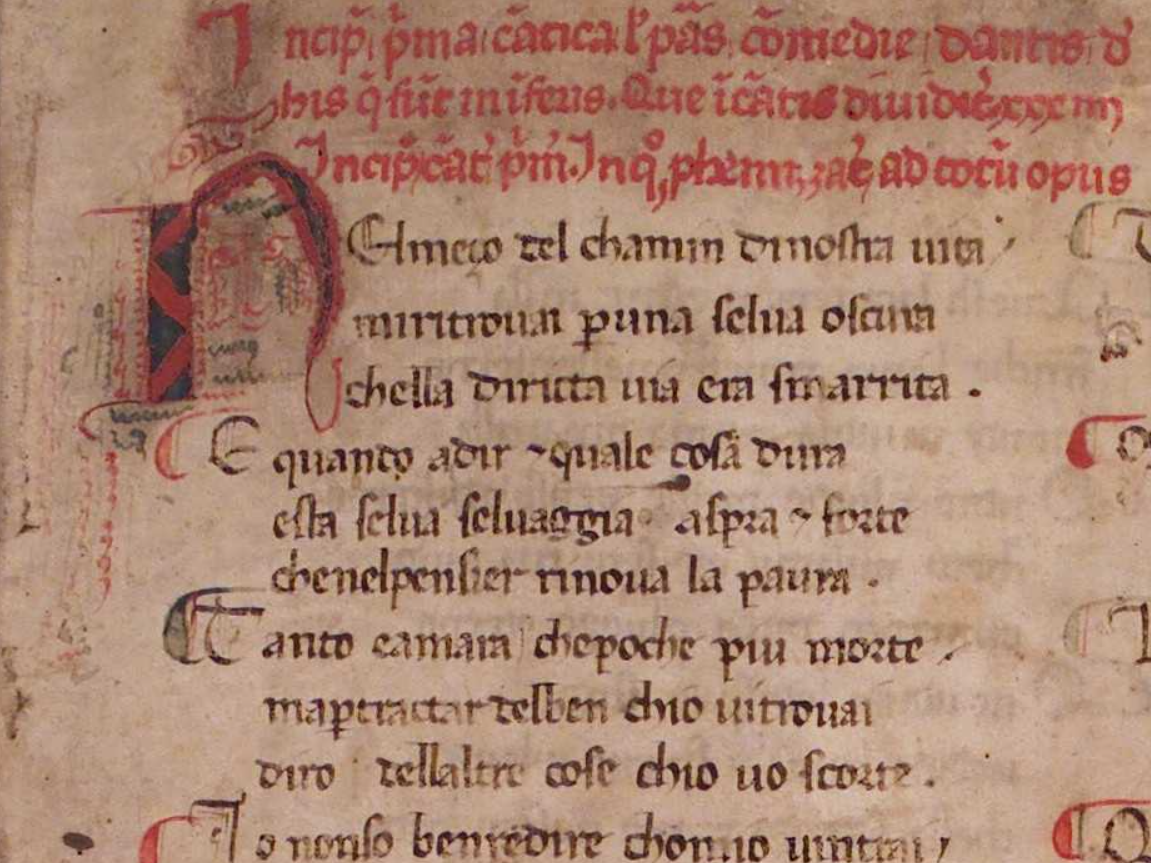 Incip̄ p̄ma cātica l' pās cōmedie dantis d'
his q̄ sūt in īferis. Que īcātis diuidit̄ xxxiiij
Incip̄ cāt' p̄m. In q° phemizat ad totū opus
NElmeço del chamin dinostra uita
miritrouai p̱una selua oscura
chella diritta uia era smarrita .
E quanto adir ⁊quale cosa dura
esta selua seluaggia aspra ⁊ forte
chenelpensier rinoua la paura .
Tanto eamara chepoche piu morte
map̱tractar delben chio uitrouai
diro dellaltre cose chio uo scorte .
Io nonso benredire chomio uintrai